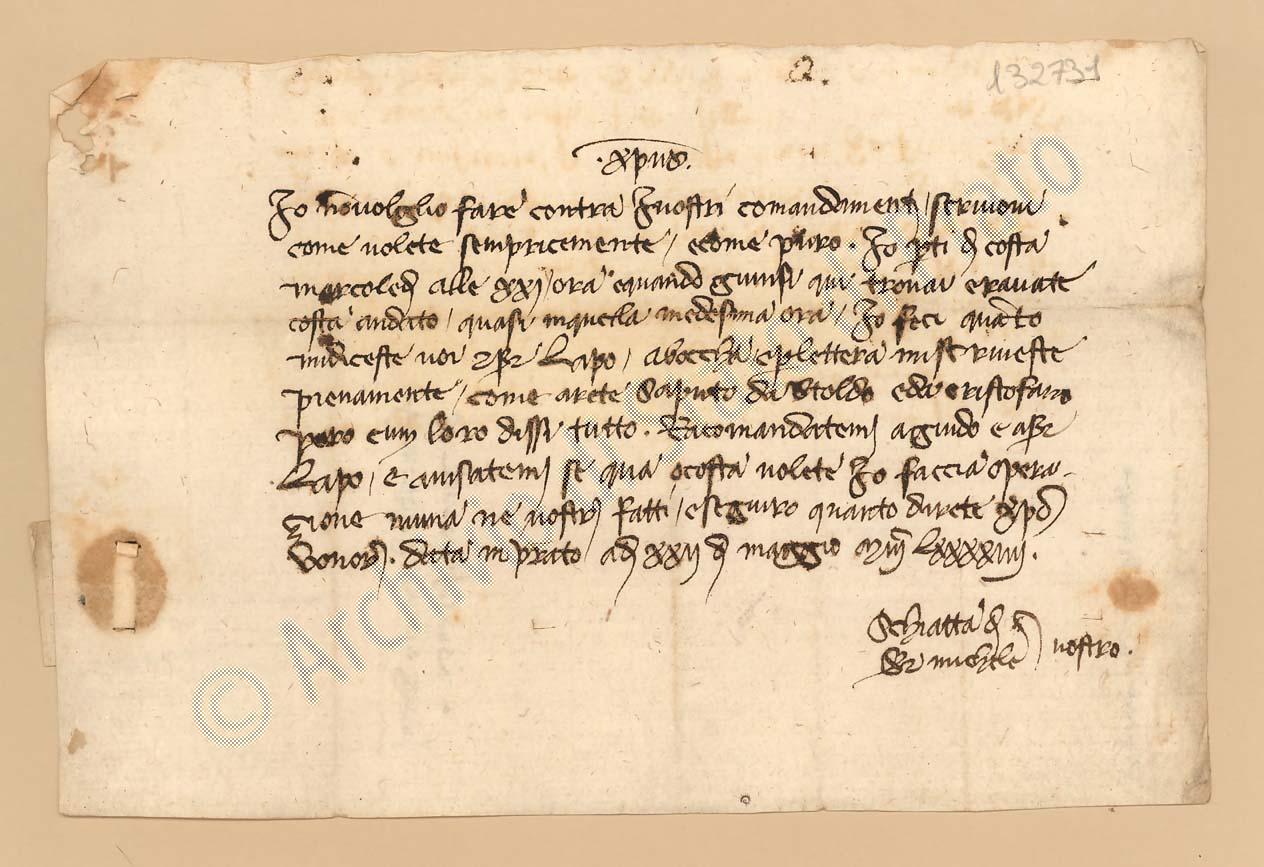 132731
.xpus.
Io nō volglio fare contra Ivostri comandamenti / scrivovi
come volete sempricemente / e come puro . Io pti di costa
marcoledi alle xxj ora e quando giunsi qui trovai eravate
costa andato / quasi in quella medesima ora / Io feci quāto
mi diceste voi e s Lapo / a boccha e p lettera mi scriveste
pienamente / come arete saputo da Stoldo e da cristofano
pero cum loro dissi tutto . Racomandatemi a guido e a s
Lapo / e avisatemi se qua o costa volete Io faccia opera-
zione niuna ne vostri fatti / e seguiro quanto direte xpo
vi . data in prato adi xxij di maggio lxxxxiiij .
Schiatta di s
michele vostro .
© Archivio di Stato di Prato